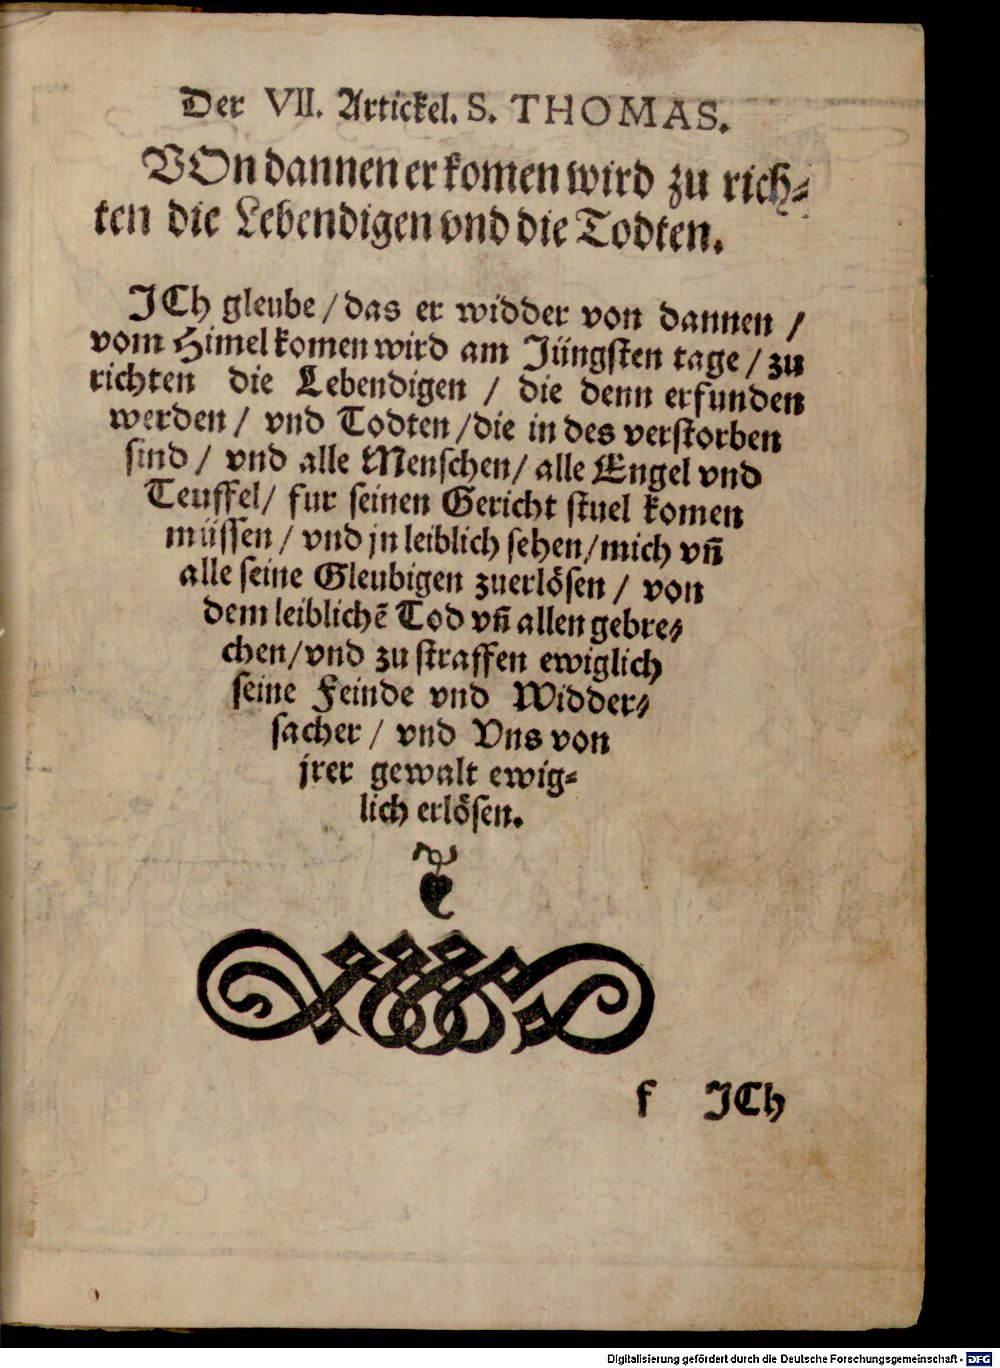 Der VII. Artickel. S. THOMAS.
VOn dannen er komen wird zu rich⸗
ten die Lebendigen vnd die Todten.
JCh gleube / das er widder von dannen /
vom Himel komen wird am Jüngsten tage / zu
richten die Lebendigen / die denn erfunden
werden / vnd Todten / die in des verstorben
sind / vnd alle Menschen / alle Engel vnd
Teuffel / fur seinen Gericht stuel komen
müssen / vnd jn leiblich sehen / mich vñ
alle seine Gleubigen zuerlösen / von
dem leiblichē Tod vñ allen gebre⸗
chen / vnd zu straffen ewiglich
seine Feinde vnd Widder⸗
sacher / vnd Vns von
jrer gewalt ewig⸗
lich erlösen.
f JCh
Digitalisierung gefördert durch die Deutsche Forschungsgemeinschaft - DFG